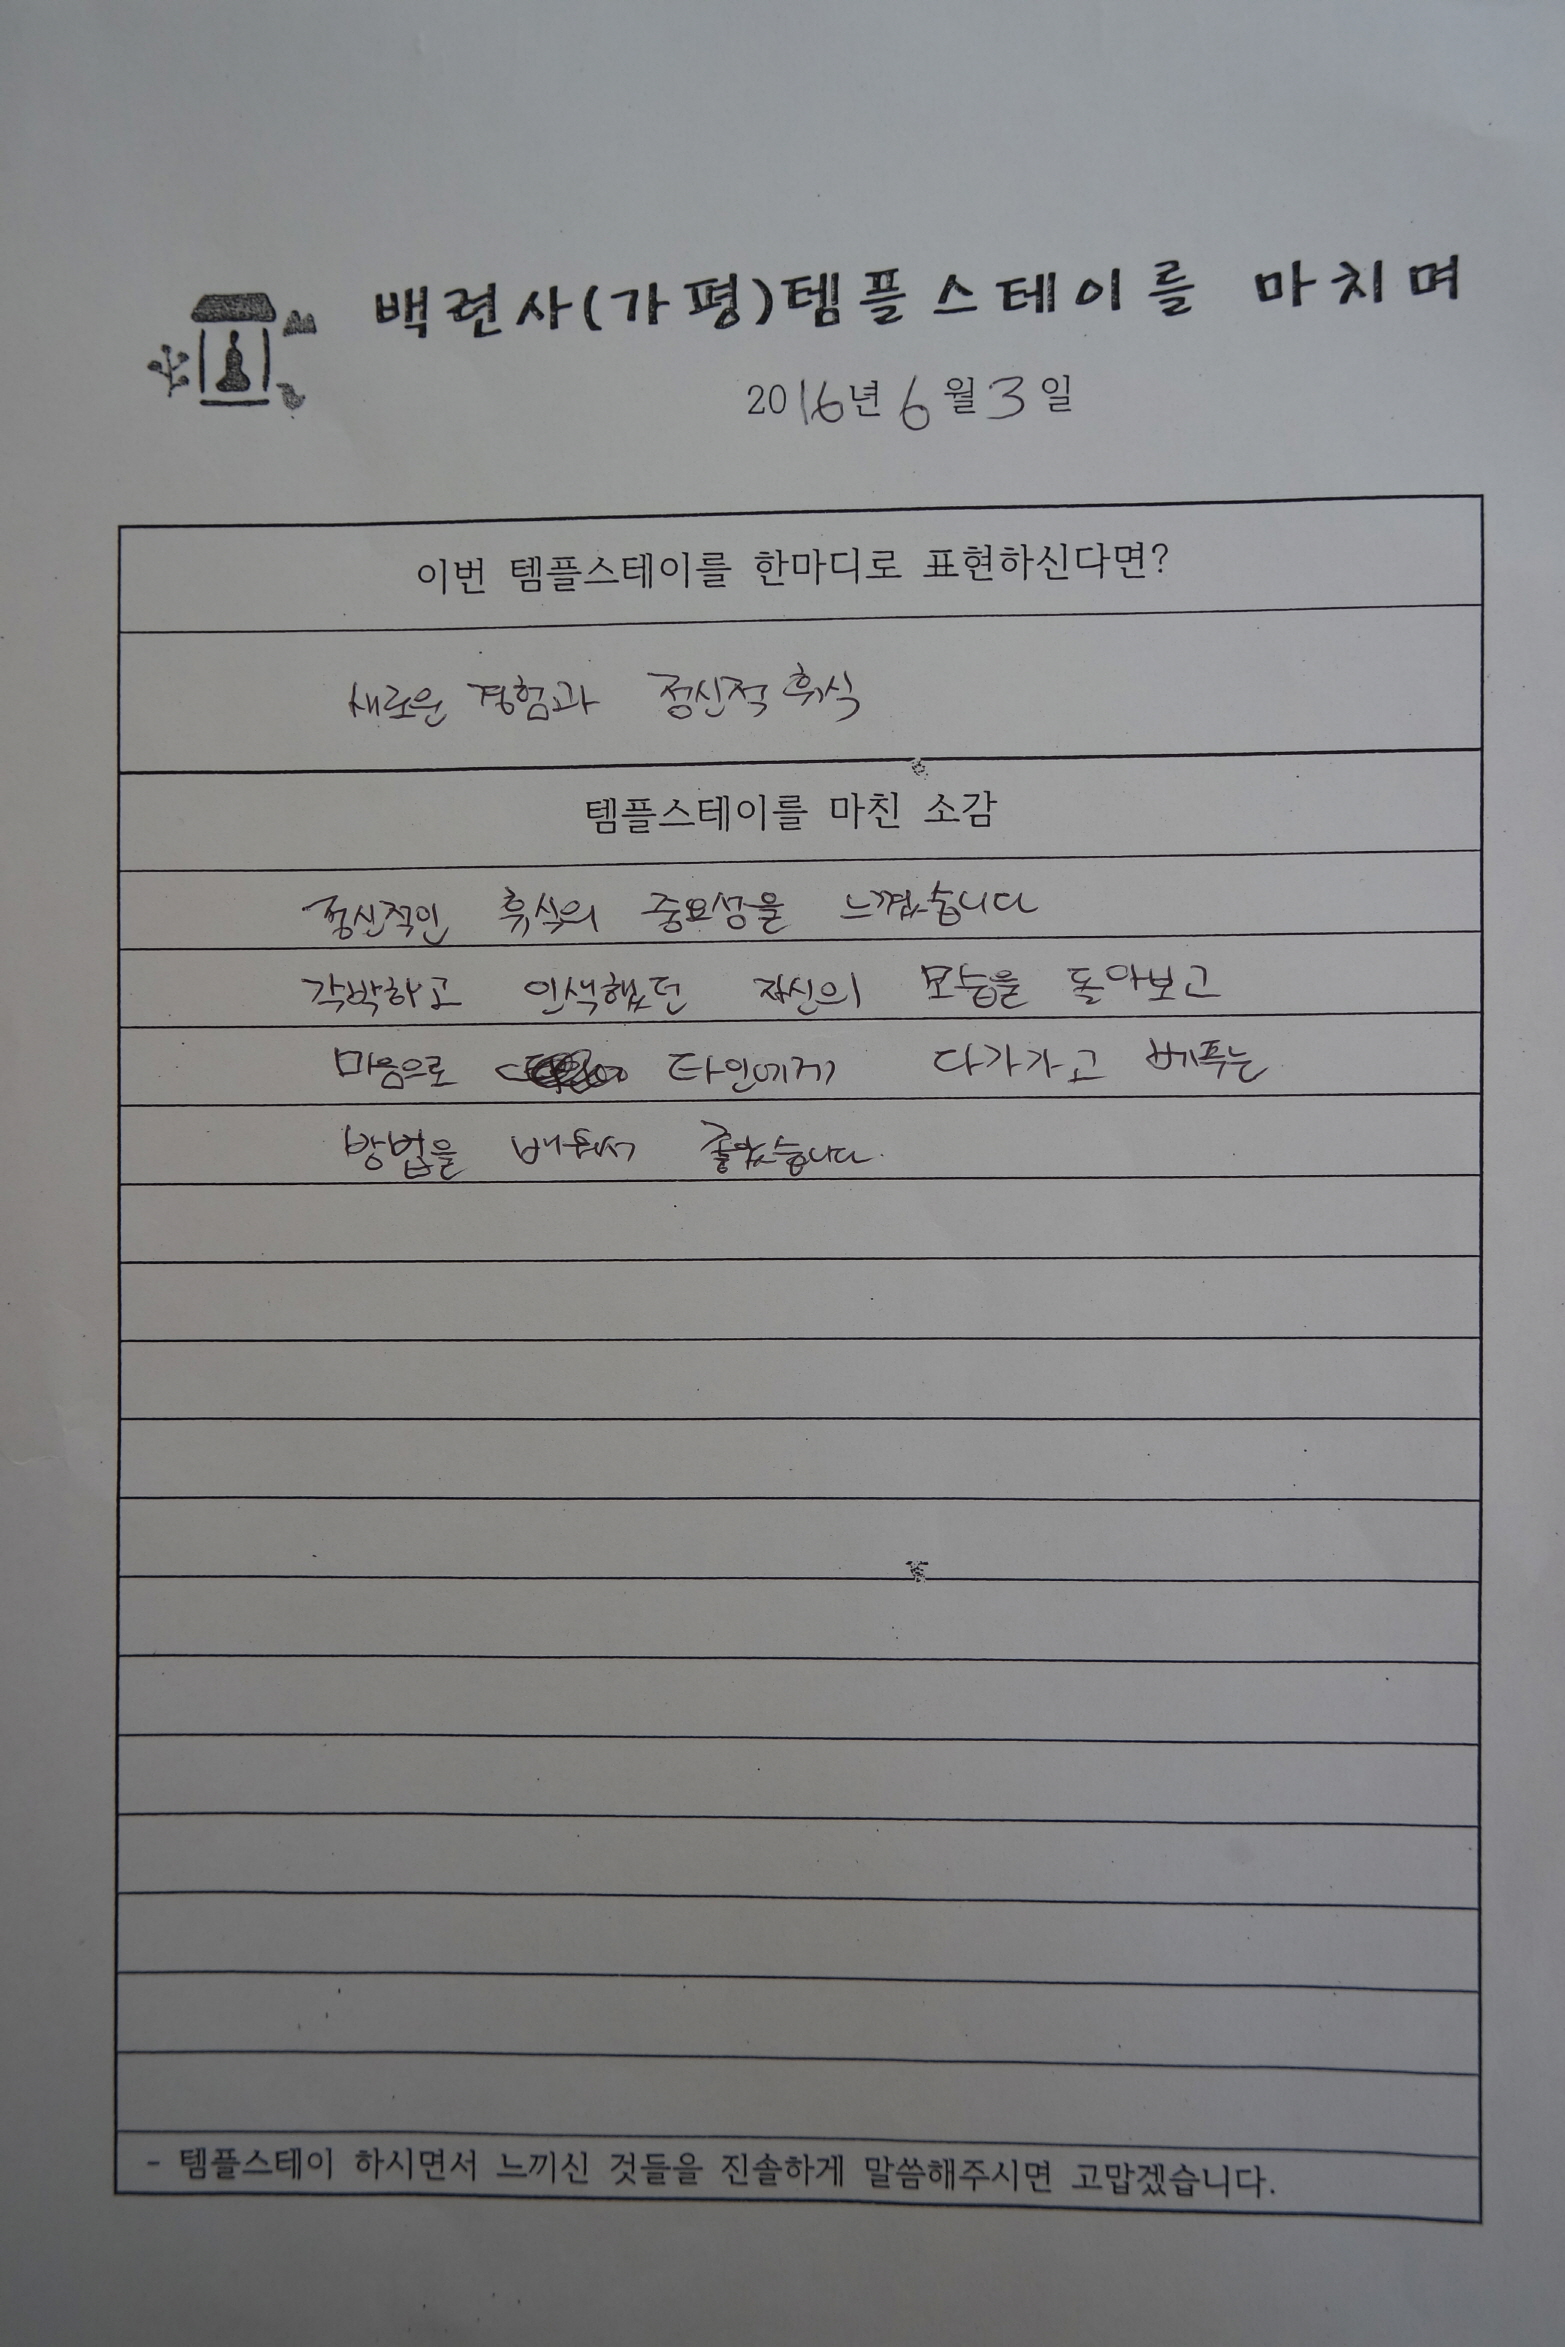 백련사(가평)템플스테이를 마치며
2016년 6월 3일
이번 템플스테이를 한마디로 표현하신다면?
새로운 경험과 정신적 휴식
템플스테이를 마친 소감
정신적인 휴식의 중요성을 느꼈습니다
각박하고 인색했던 자신의 모습을 돌아보고
마음으로 타인에게 다가가고 베푸는
방법을 배워서 좋았습니다.
- 템플스테이 하시면서 느끼신 것들을 진솔하게 말씀해주시면 고맙겠습니다.